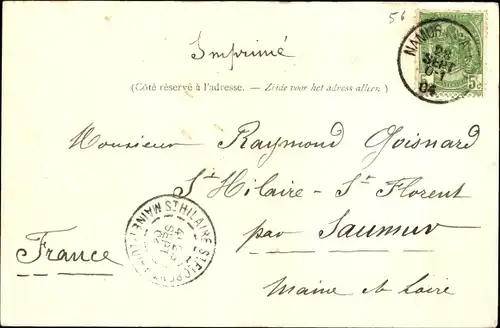 56
Imprimé
(Côté réservé à l'adresse. — Zijde voor het adress alleen)
NAMUR
SEPT
04
5c
Monsieur Raymond Goisnard
St Hilaire - St Florent
par Saumur
Maine & Loire
France
ST HILAIRE ST FLORENT
SEPT